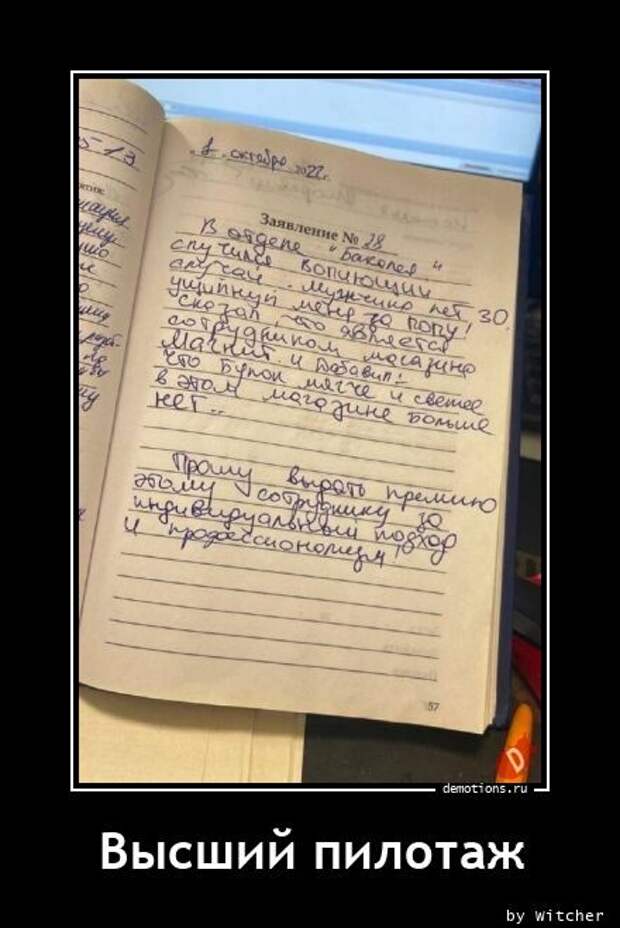 „1" октября 2022г.
Заявление № 28
В отделе "Бакалея"
случился вопиющий
случай. Мужчина лет 30,
ущипнул меня за попу!
сказал, что является
сотрудником магазина
Магнит и добавил:
что Булок мягче и свежее
в этом магазине больше
нет..
Прошу выдать премию
этому сотруднику за
индивидуальный подход
и профессионализм!
57
demotions.ru
Высший пилотаж
by Witcher